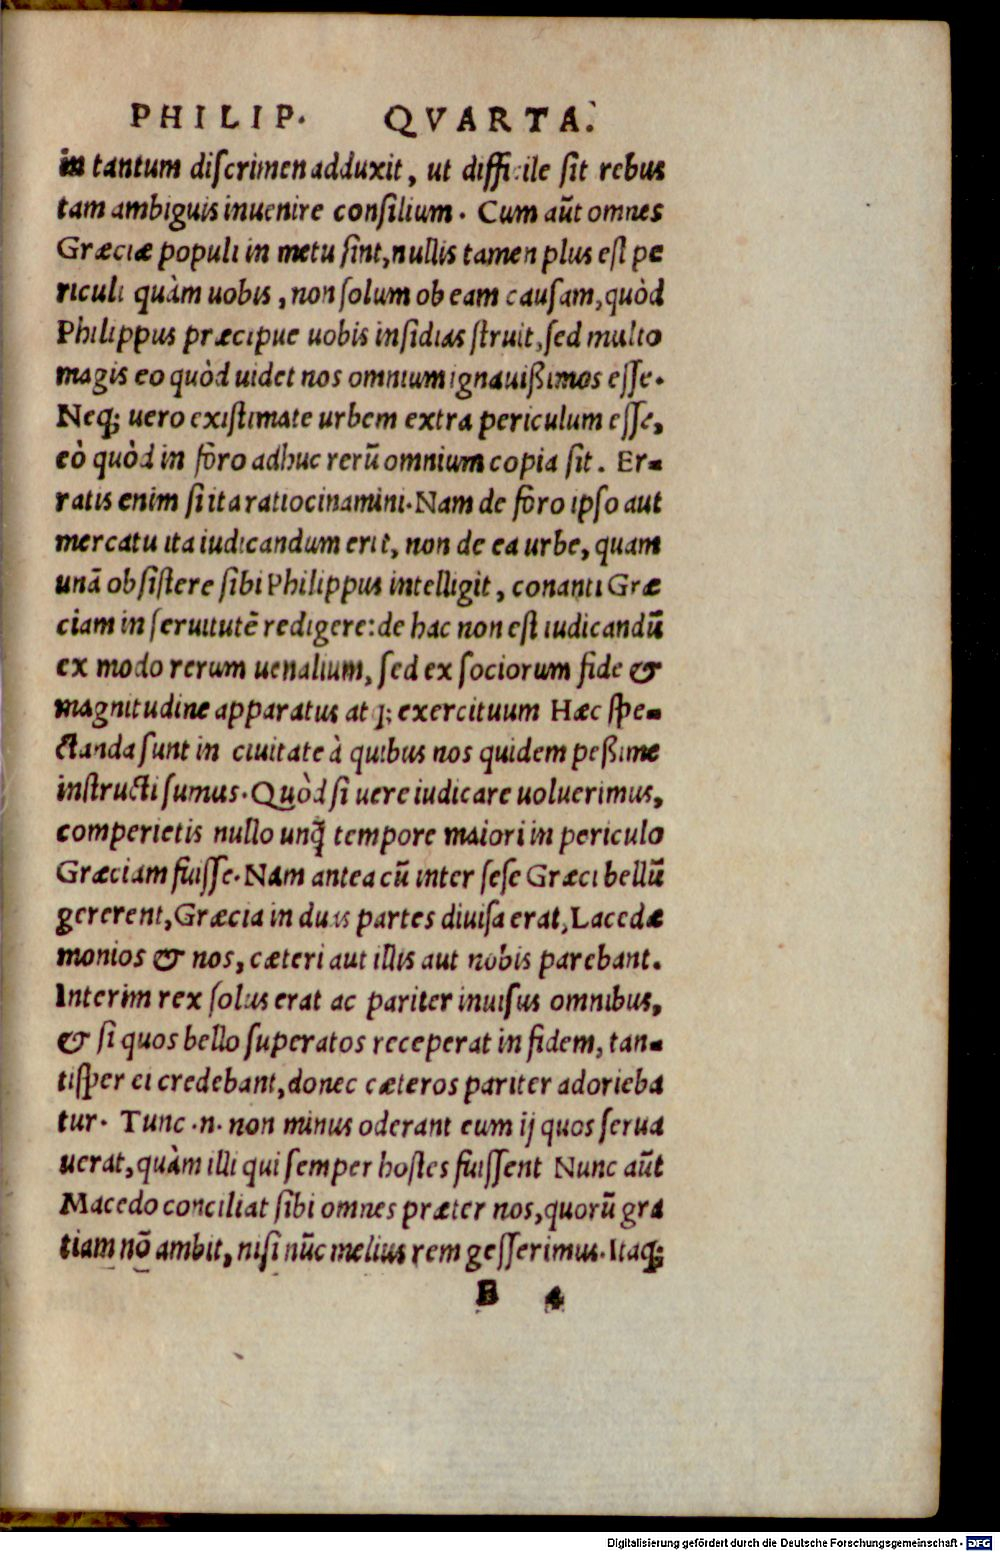 PHILIP. QVARTA.
in tantum diſcrimen adduxit, ut difficile ſit rebus
tam ambiguis inuenire conſilium. Cum aũt omnes
Græciæ populi in metu ſint, nullis tamen plus eſt pe
riculi quàm uobis, non ſolum ob eam cauſam, quòd
Philippus præcipue uobis inſidias ſtruit, ſed multo
magis eo quòd uidet nos omnium ignauißimos eſſe.
Neq; uero exiſtimate urbem extra periculum eſſe,
eò quòd in foro adhuc rerũ omnium copia ſit. Er-
ratis enim ſi ita ratiocinamini. Nam de foro ipſo aut
mercatu ita iudicandum erit, non de ea urbe, quam
unã obſiſtere ſibi Philippus intelligit, conanti Græ
ciam in ſeruitutẽ redigere: de hac non eſt iudicandũ
ex modo rerum uenalium, ſed ex ſociorum fide &
magnitudine apparatus atq; exercituum Hæc ſpe-
ctanda ſunt in ciuitate à quibus nos quidem peßime
inſtructi ſumus. Quòd ſi uere iudicare uoluerimus,
comperietis nullo unq̃ tempore maiori in periculo
Græciam fuiſſe. Nam antea cũ inter ſeſe Græci bellũ
gererent, Græcia in duas partes diuiſa erat, Lacedæ
monios & nos, cæteri aut illis aut nobis parebant.
Interim rex ſolus erat ac pariter inuiſus omnibus,
& ſi quos bello ſuperatos receperat in fidem, tan-
tiſper ei credebant, donec cæteros pariter adorieba
tur. Tunc .n. non minus oderant eum ij quos ſerua
uerat, quàm illi qui ſemper hoſtes fuiſſent Nunc aũt
Macedo conciliat ſibi omnes præter nos, quorũ gra
tiam nõ ambit, niſi nũc melius rem geſſerimus. Itaq;
B 4
Digitalisierung gefördert durch die Deutsche Forschungsgemeinschaft - DFG